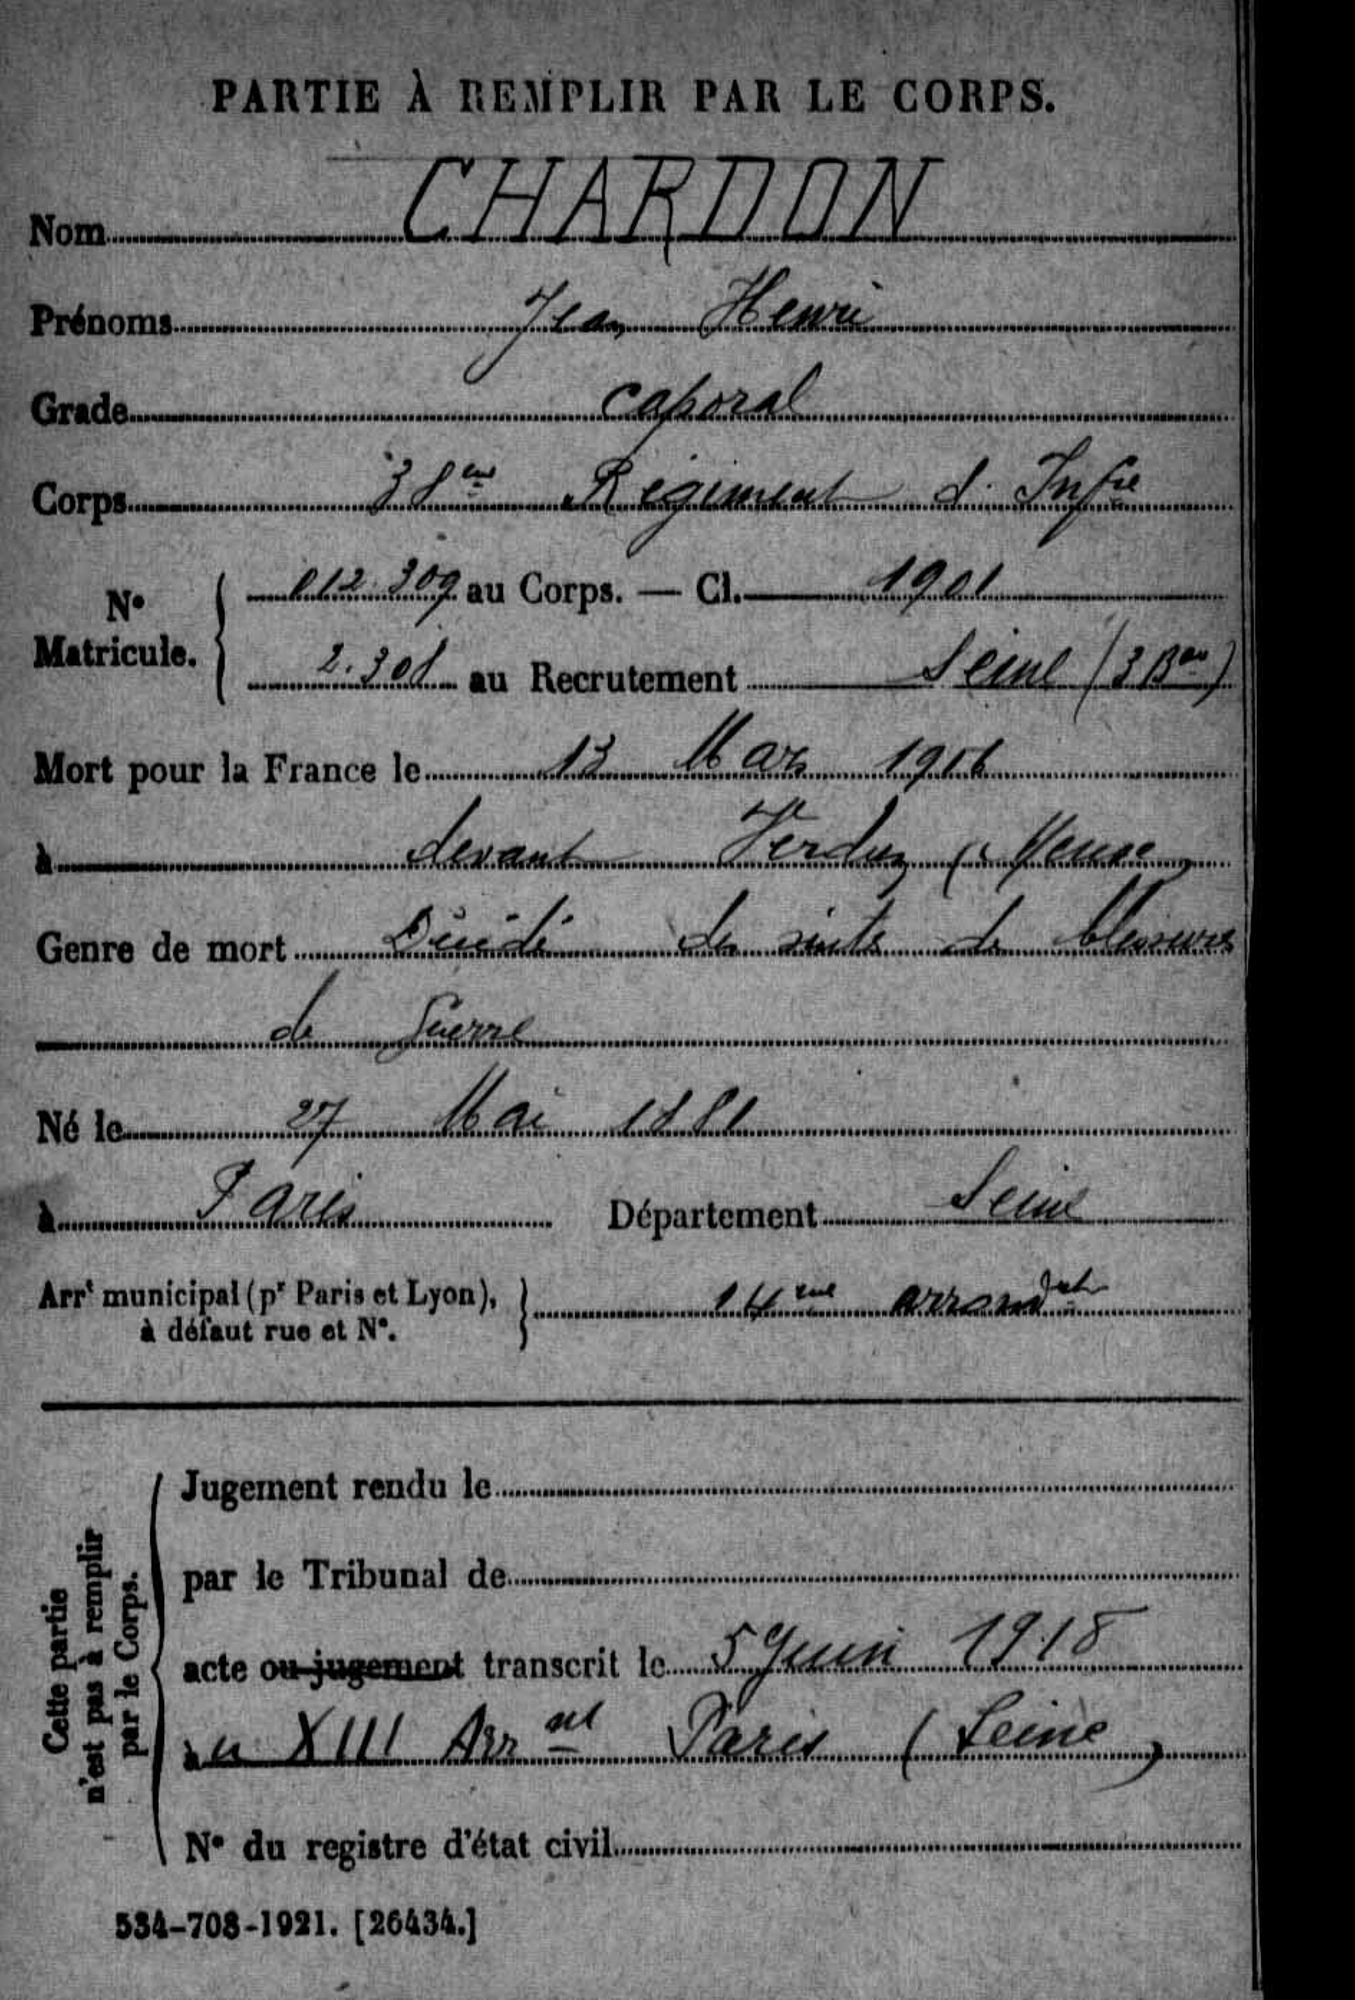 PARTIE À REMPLIR PAR LE CORPS.
Nom CHARDON
Prénoms Jean Henri
Grade caporal
Corps 38me Régiment d. Infie
N° Matricule. { 012.309 au Corps. — Cl. 1901
2.301 au Recrutement Seine (3 Bau)
Mort pour la France le 13 Mars 1916
à devant Verdun (Meuse)
Genre de mort Décédé des suites de blessures
de guerre
Né le 27 Mai 1881
à Paris Département Seine
Arrt municipal (pr Paris et Lyon), à défaut rue et N°. } 14me arrondt
Cette partie n'est pas à remplir par le Corps.
Jugement rendu le
par le Tribunal de
acte ou jugement transcrit le 5 Juin 1918
au XIII Arrnt Paris (Seine)
N° du registre d'état civil
534-708-1921. [26434.]